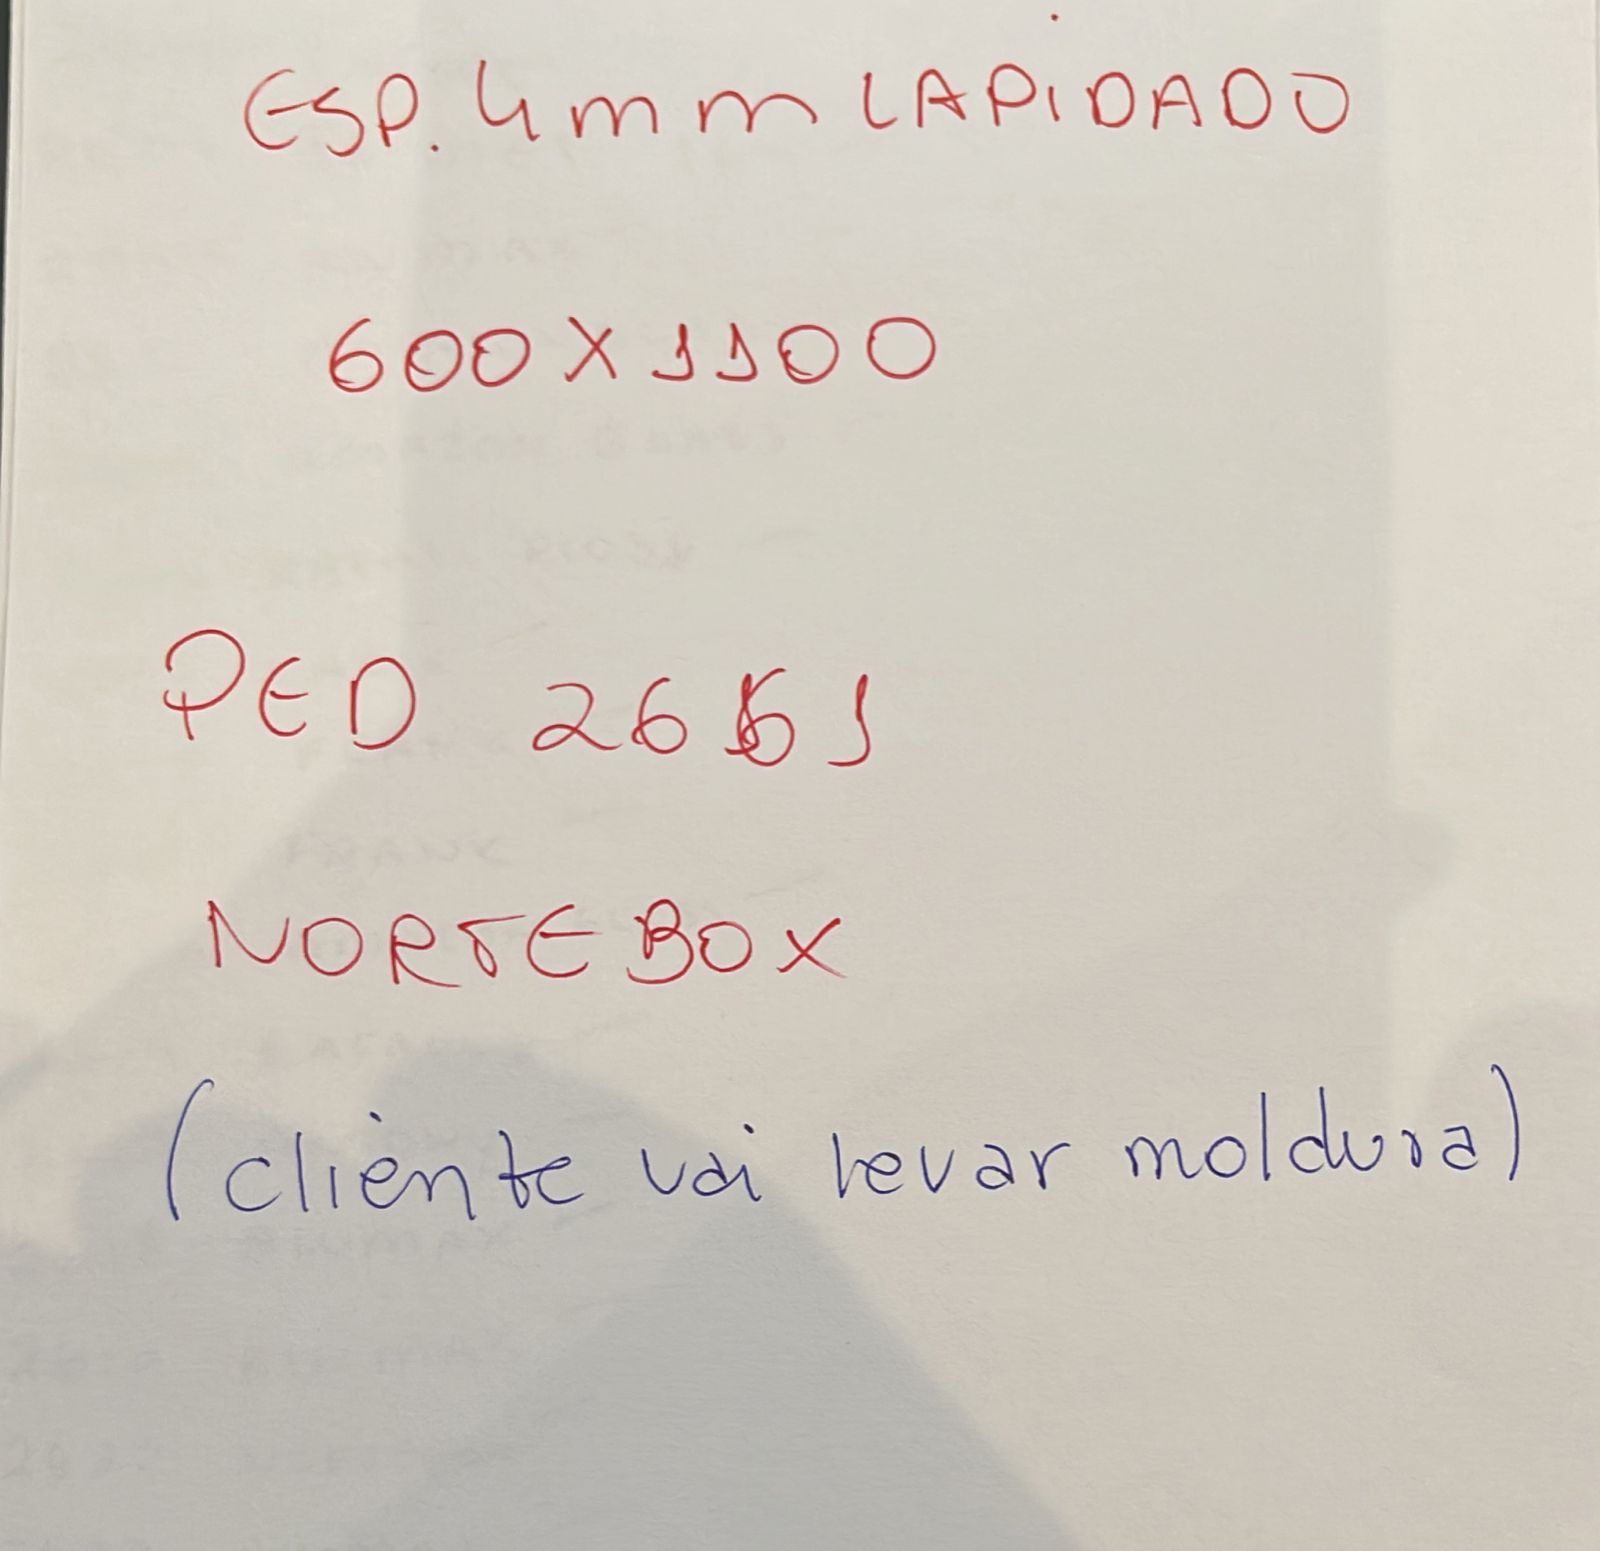 ESP. 4mm LAPIDADO
600 X 1100
PED 2651
NORTEBOX
(cliente vai levar moldura)